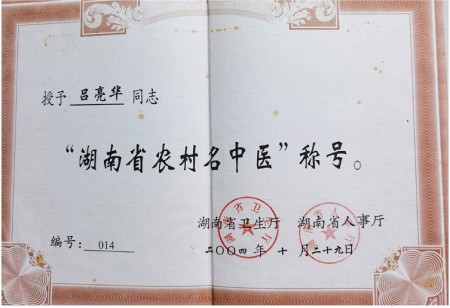 授予 吕亮华 同志
“湖南省农村名中医”称号。
湖南省卫生厅 湖南省人事厅
编号： 014
二〇〇四年十月二十九日